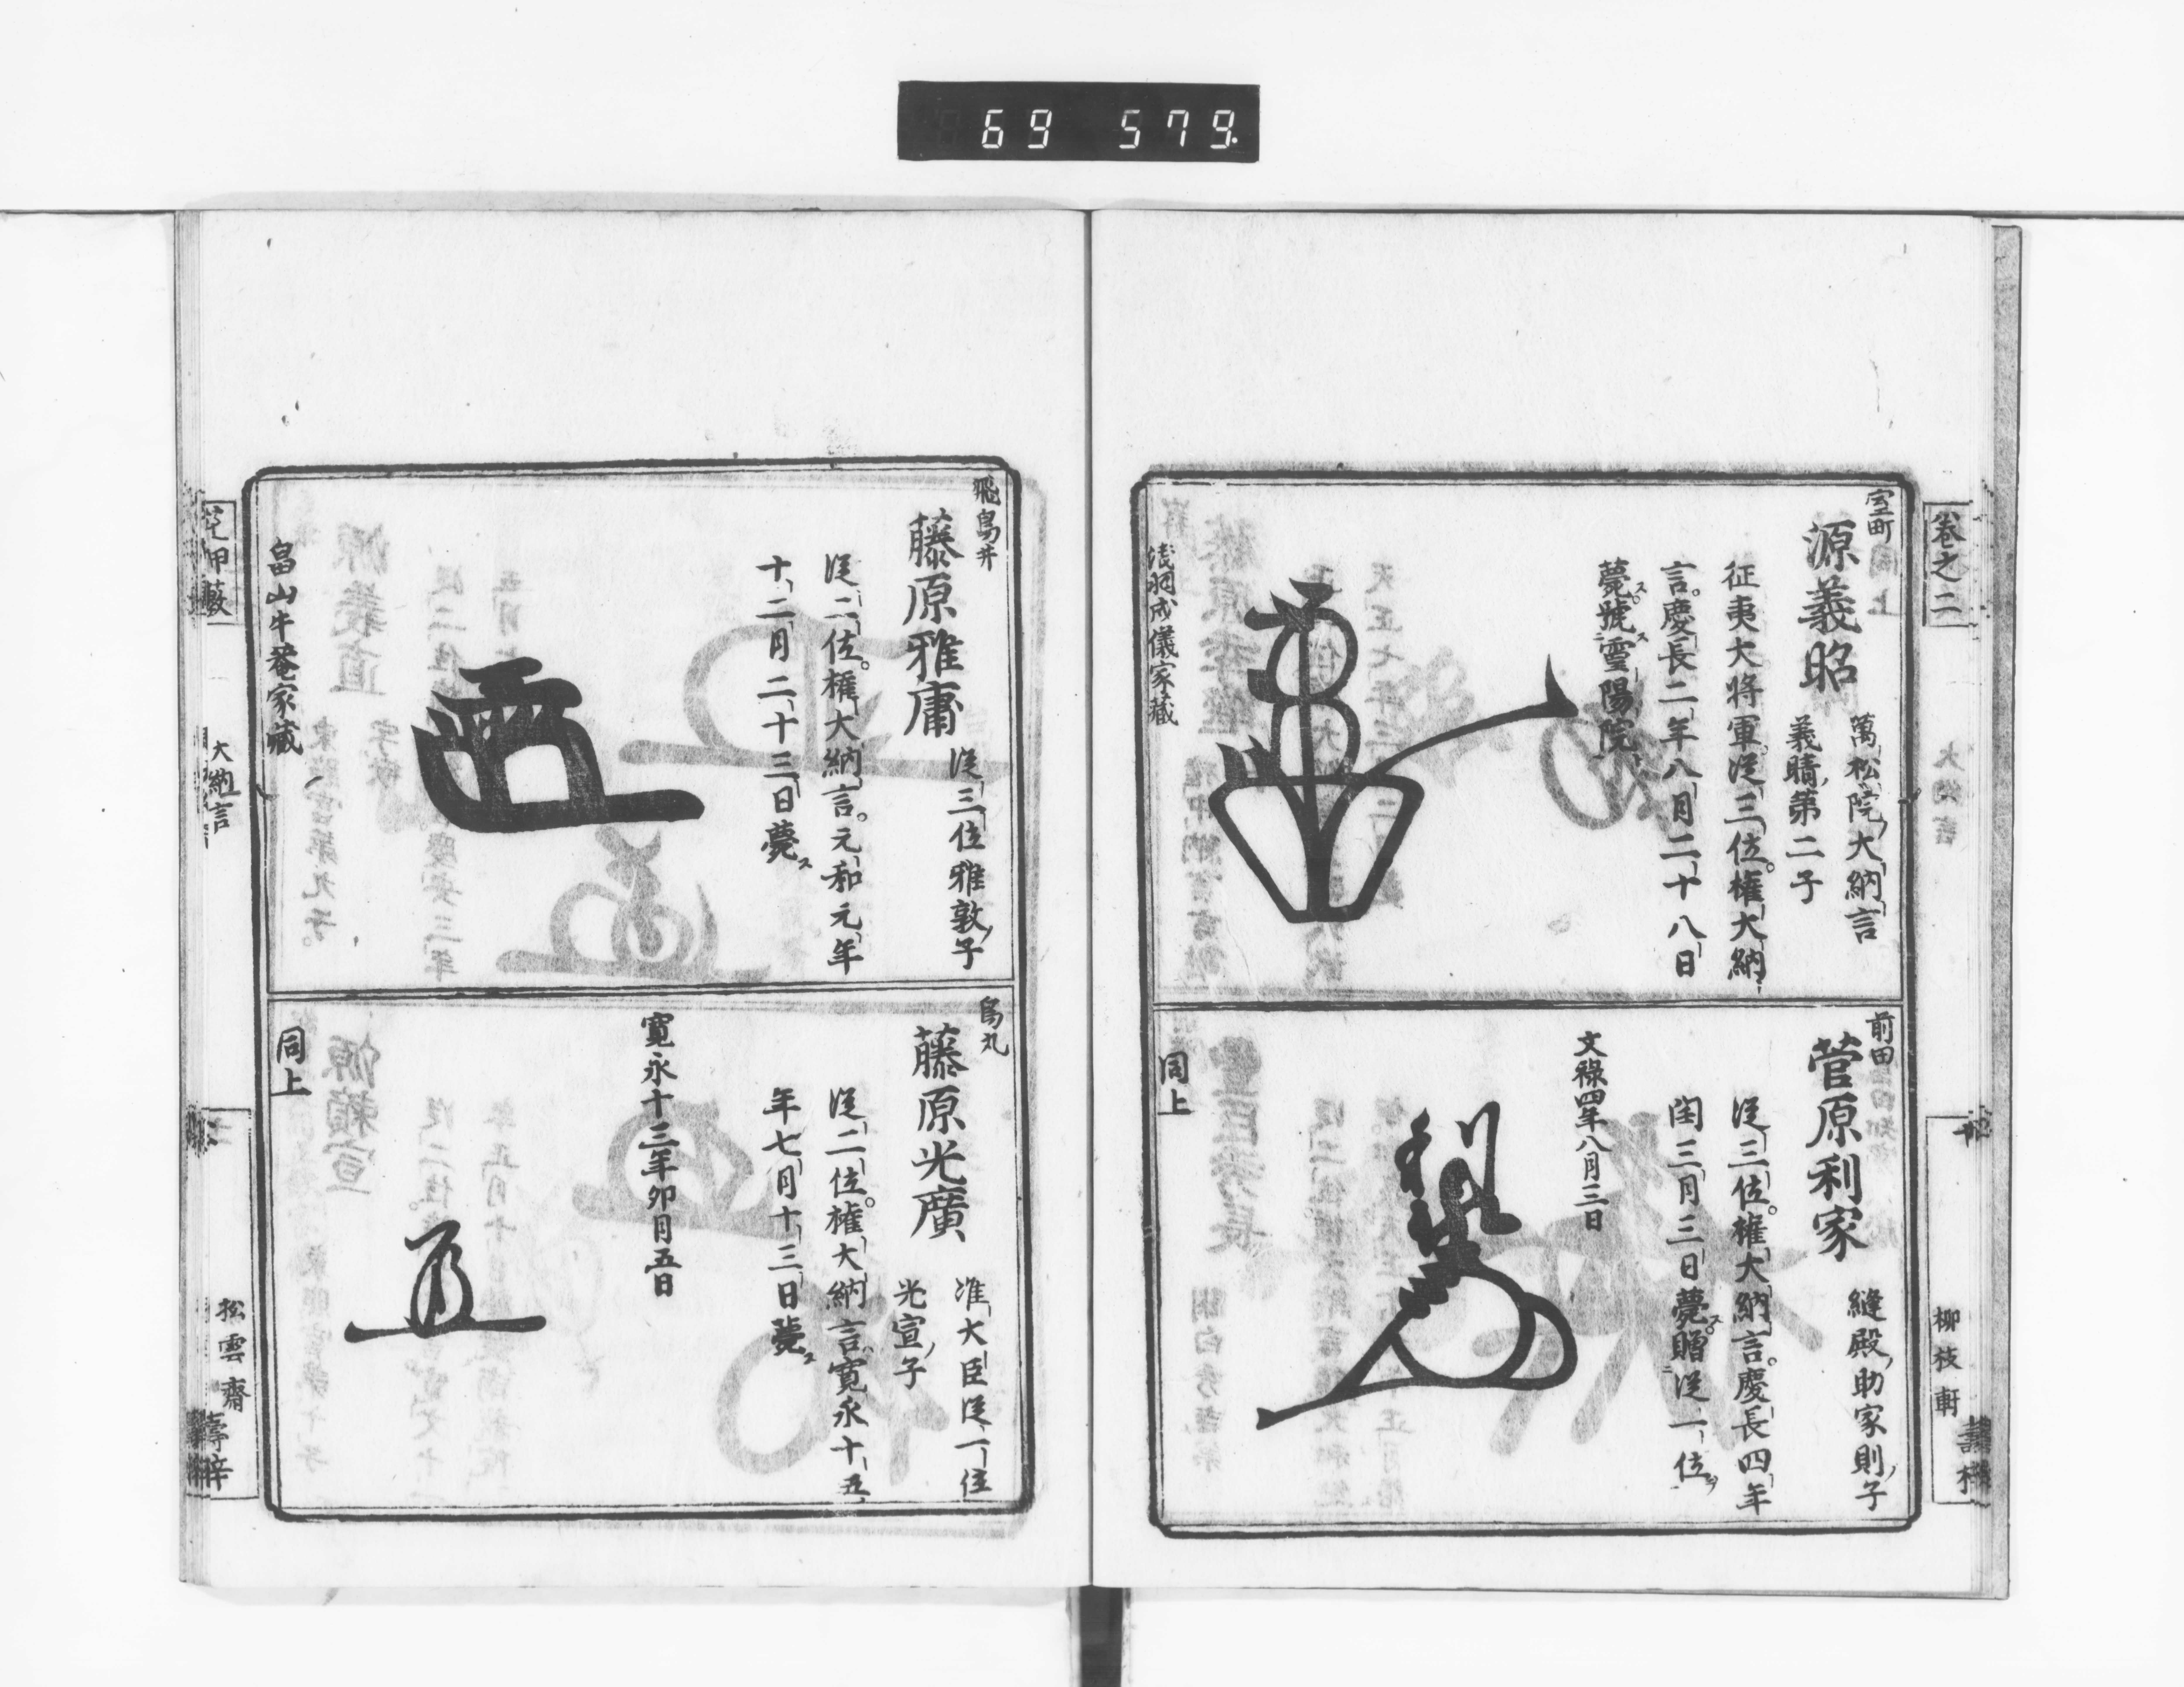 69 579.
卷之二
室町
源義昭
萬松院大納言
義晴第二子
征夷大将軍從三位。權大納
言。慶長二年八月二十八日
薨ス。號ス靈陽院ニ
淺羽成儀家藏
前田
菅原利家
縫殿助家則子
從三位。權大納言。慶長四年
閏三月三日薨ス。贈從一位ヲ
文祿四年八月三日
同上
柳枝軒
飛鳥井
藤原雅庸
從三位雅敦子
從二位。權大納言。元和元年
十二月二十三日薨ス
畠山牛菴家藏
烏丸
藤原光廣
准大臣從一位
光宣子
從二位。權大納言。寛永十五
年七月十三日薨ス
寛永十三年卯月五日
同上
大納言
松雲齋
壽梓